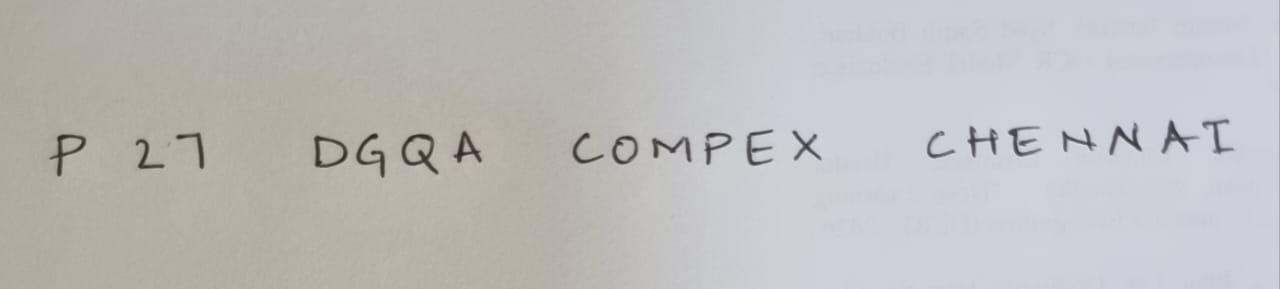 P 27 DGQA COMPEX CHENNAI